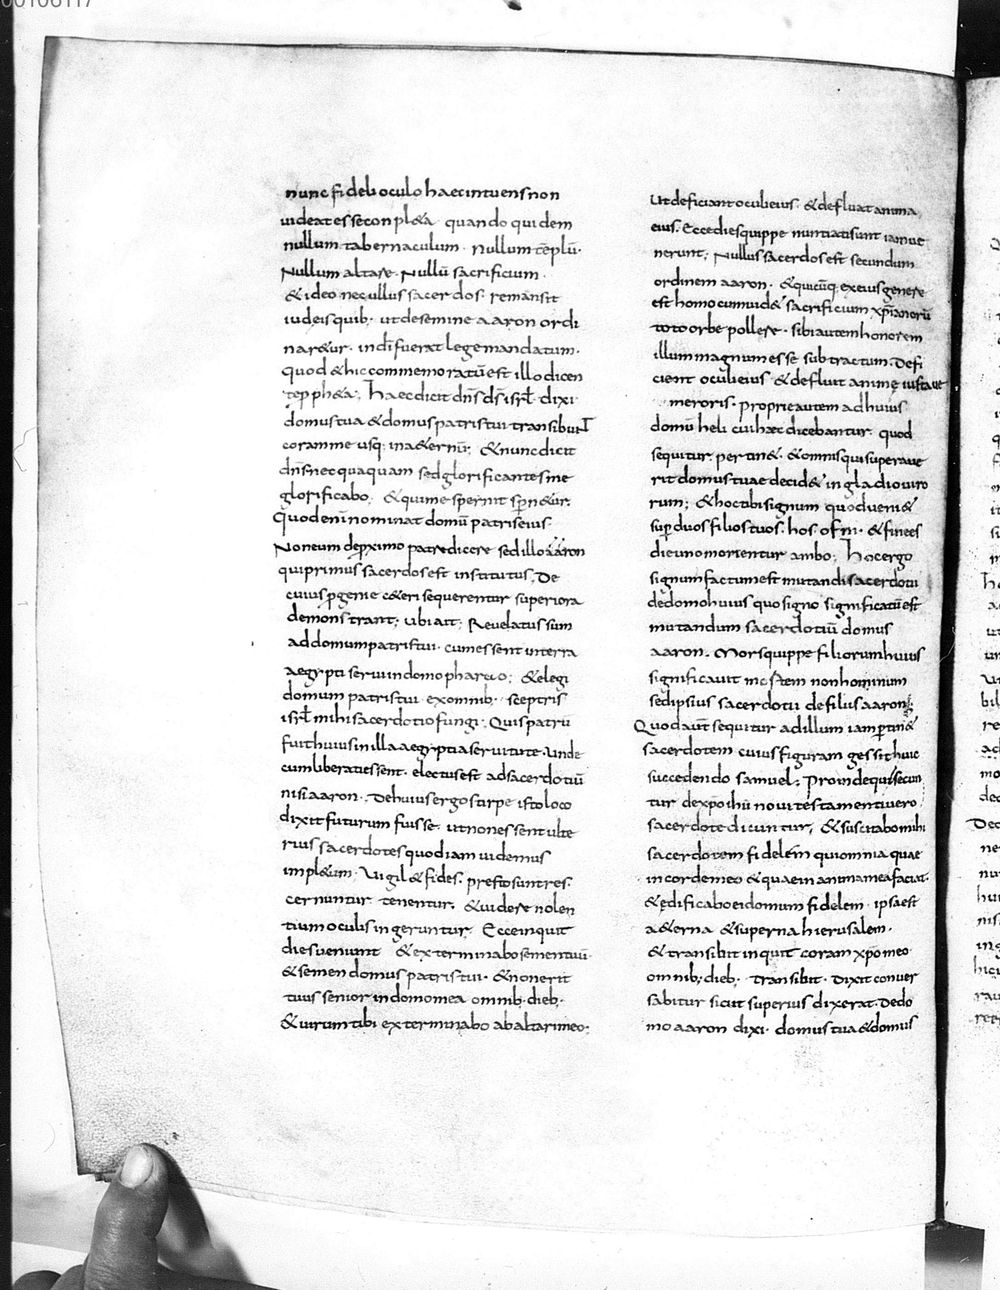 nunc fideli oculo haec intuens non
uideat esse conpl&a quando quidem
nullum tabernaculum · Nullum teplū ·
Nullum altare · Nullū sacrificium ·
& ideo nec ullus sacerdos · remansit
iudeis quib; ut de semine aaron ordi
nar&ur · in di fuerat lege mandatum ·
quod & hic commemoratū est illo dicen
te pph&a; Haec dicit dn̄s ds̄ isrł dixi
domus tua & domus patris tui transibunT
coram me usq; in a&ernū; & nunc dicit
dn̄s nequaquam sed glorificantes me
glorificabo; & qui me spernit spn&ur.
Quod eni nominat domū patris eius
Non eum de pximo patre dicere sed illo aaron
qui primus sacerdos est institutus; De
cuius pgenie c&eri sequerentur superiora
demonstrant; ubi ait; Reuelatus sum
ad domum patris tui · cum essent in terra
aegypti serui in domo pharao; & elegi
domum patris tui · ex omnib; sceptris
isrł mihi sacerdotio fungi; Quis patrū
fuit huius in illa aegyptia seruitute · Unde
cum liberati essent · electus est ad sacerdotiū
nisi aaron · De huius ergo stirpe isto loco
dixit futurum fuisse · ut non essent ulte
rius sacerdotes quod iam uidemus
impl&um · Uigil& fides · presto sunt res ·
cernuntur tenentur, & uidere nolen
tium oculis ingeruntur Ecce inquit
dies ueniunt & exterminabo semen tuū
& semen domus patris tui · & non erit
tuus senior in domo mea omnib; dieb; ·
& uirum tibi exterminabo ab altari meo;
Ut deficiant oculi eius · & defluat anima
eius. Ecce dies quippe nuntiati sunt iam ue
nerunt; Nullus sacerdos est secundum
ordinem aaron · & quicūq; ex eius genere
est homo cum uid& sacrificium xp̄ianorū
toto orbe pollere · sibi autem honorem
illum magnum esse subtractum. Defi
cient oculi eius & defluit anime ius
meroris · Proprie autem ad huius
domū heli cui haec dicebantur quod
sequitur pertin& · & omnis qui superaue
rit domus tuae decid& in gladio uiro
rum; & hoc tibi signum quod ueni&
sup duos filios tuos · hos · ofni · & finees
die uno morientur ambo; Hoc ergo
signum factum est mutandi sacerdotii
de domo huius quo signo significatū est
mutandum sacerdotiū domus
aaron. Mors quippe filiorum huius
significauit mortem non hominum
sed ipsius sacerdotii de filiis aaron;
Quod aut̄ sequitur ad illum iam ptin&
sacerdotem cuius figuram gessit huic
succedendo samuel; Proinde qui secun
tur de xpo ihū noui testamenti uero
sacerdote dicuntur; & suscitabo mihi
sacerdotem fidelem qui omnia quae
in corde meo & quae in anima mea faciat ·
& ędificabo ei domum fidelem · ipsa est
a&erna & superna hierusalem ·
& transibit inquit coram xp̄o meo
omnib; dieb; · Transibit · Dixit conuer
sabitur sicut superius dixerat · De do
mo aaron dixi · domus tua & domus